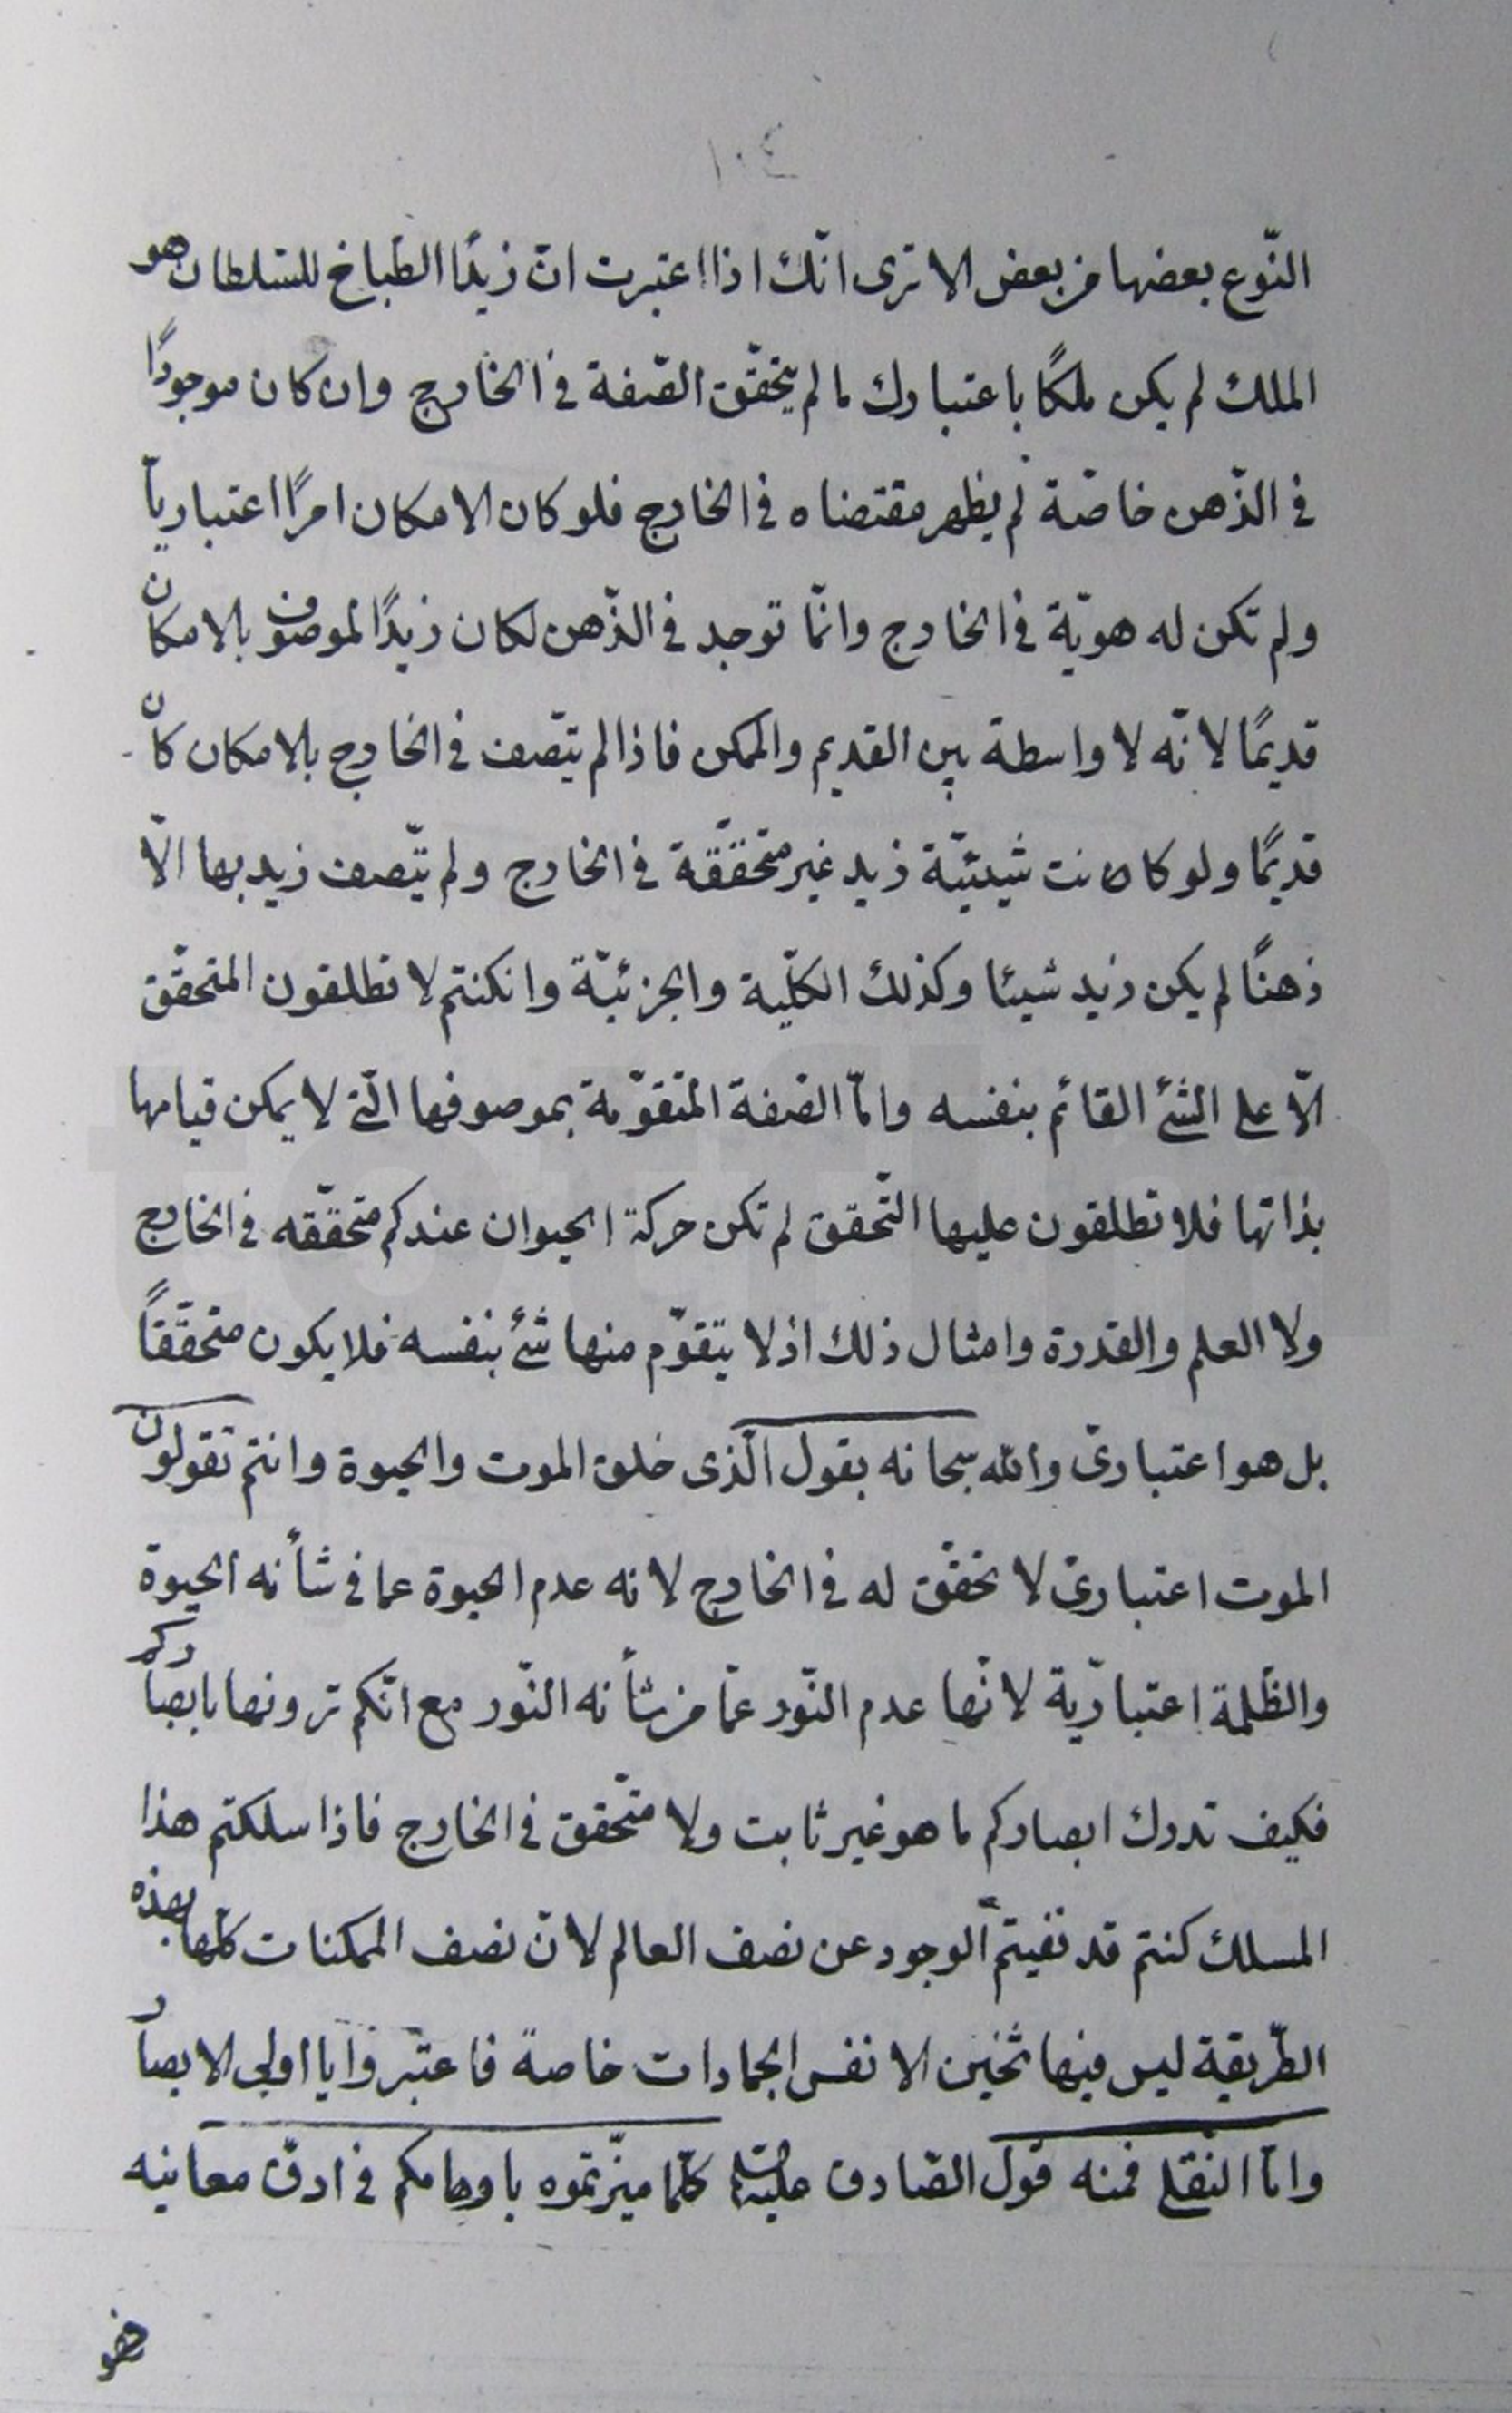 ١٠٤
النّوع بعضها من بعض الا ترى انّك اذا اعتبرت انّ زيدًا الطّباخ للسّلطان هو
الملك لم يكن ملكًا باعتبارك ما لم يتحقّق الصّفة فى الخارج وان كان موجودًا
فى الذّهن خاصّة لم يظهر مقتضاه فى الخارج فلو كان الامكان امرًا اعتباريّاً
ولم تكن له هويّة فى الخارج وانّما توجد فى الذّهن لكان زيدًا لموصوف بالامكان
قديمًا لانّه لا واسطة بين القديم والممكن فاذا لم يتّصف فى الخارج بالامكان كان
قديمًا ولو كانت شيئيّة زيد غير متحقّقة فى الخارج ولم يتّصف زيد بها الّا
ذهنًا لم يكن زيد شيئا وكذلك الكلّية والجزئيّة وانكنتم لا تطلقون المتحقّق
الّا على الشئ القائم بنفسه وامّا الصّفة المتقوّمة بموصوفها الّتى لا يمكن قيامها
بذاتها فلا تطلقون عليها التّحقق لم تكن حركة الحيوان عندكم متحقّقه فى الخارج
ولا العلم والقدرة وامثال ذلك اذ لا يتقوّم منها شئ بنفسه فلا يكون متحقّقاً
بل هو اعتبارىّ والله سبحانه يقول الّذى خلق الموت والحيوة وانتم تقولون
الموت اعتبارىّ لا تحقّق له فى الخارج لانه عدم الحيوة عما فى شأنه الحيوة
والظّلمة اعتباريّة لانّها عدم النّور عمّا من شأنه النّور مع انّكم ترونها بابصاركم
فكيف تدرك ابصاركم ما هو غير ثابت ولا متحّقق فى الخارج فاذا سلكتم هذا
المسلك كنتم قد نفيتم الوجود عن نصف العالم لانّ نصف الممكنات كلّها بهذه
الطّريقة ليس فيها ثخين الا نفس الجمادات خاصة فاعتبروا يا اولى الابصار
وامّا النّقلى فمنه قول الصّادق عليه السلام كلّما ميّزتموه باوهامكم فى ادقّ معانيه
فهو